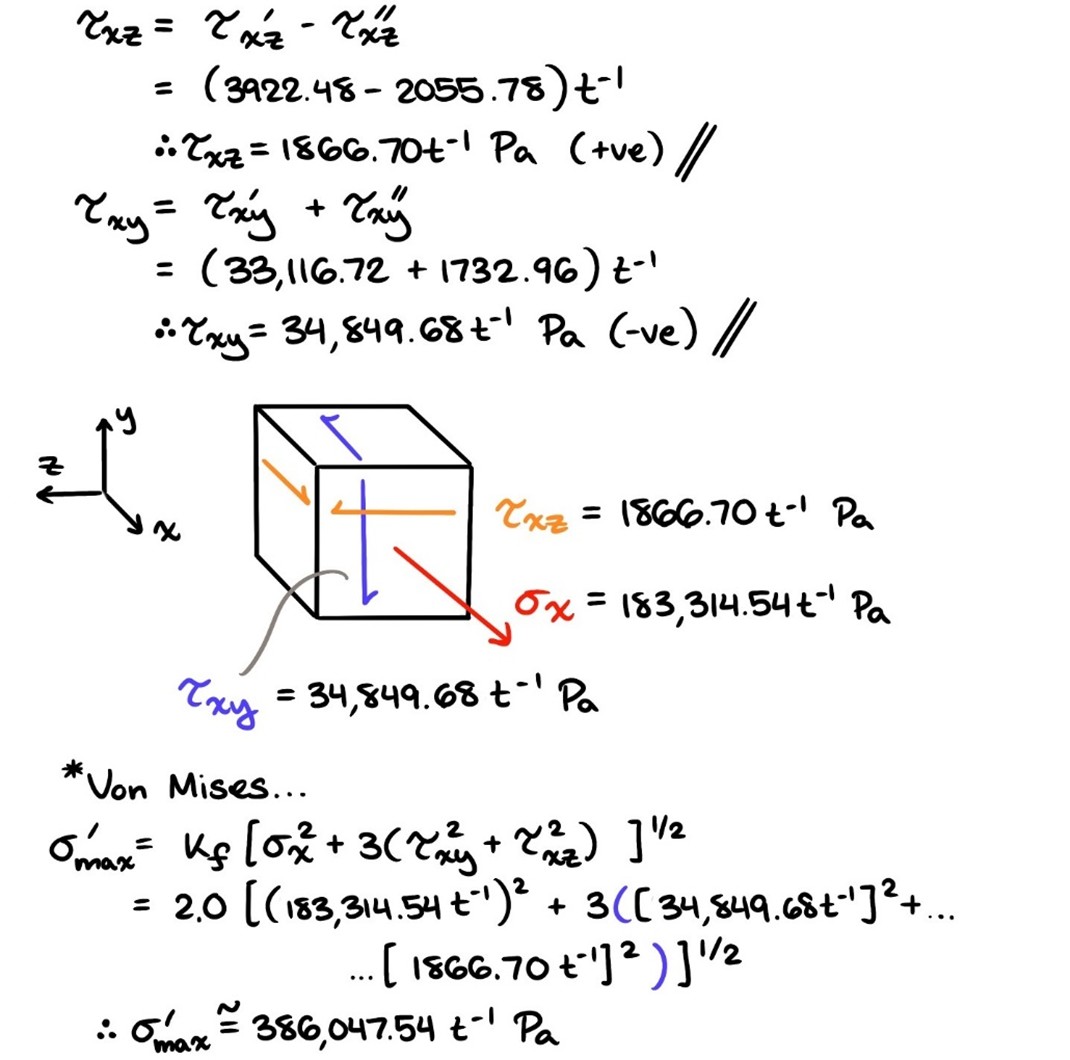 τxz = τxz′ - τxz″
= (3922.48 - 2055.78)t⁻¹
∴ τxz = 1866.70t⁻¹ Pa (+ve) //
τxy = τxy′ + τxy″
= (33,116.72 + 1732.96) t⁻¹
∴ τxy = 34,849.68t⁻¹ Pa (-ve) //
y
z
x
τxz = 1866.70 t⁻¹ Pa
σx = 183,314.54t⁻¹ Pa
τxy = 34,849.68 t⁻¹ Pa
*Von Mises...
σ′max = Kf [σx² + 3(τxy² + τxz²) ]^1/2
= 2.0 [(183,314.54 t⁻¹)² + 3([34,849.68t⁻¹]² + ...
...[ 1866.70 t⁻¹]² )]^1/2
∴ σ′max ≅ 386,047.54 t⁻¹ Pa